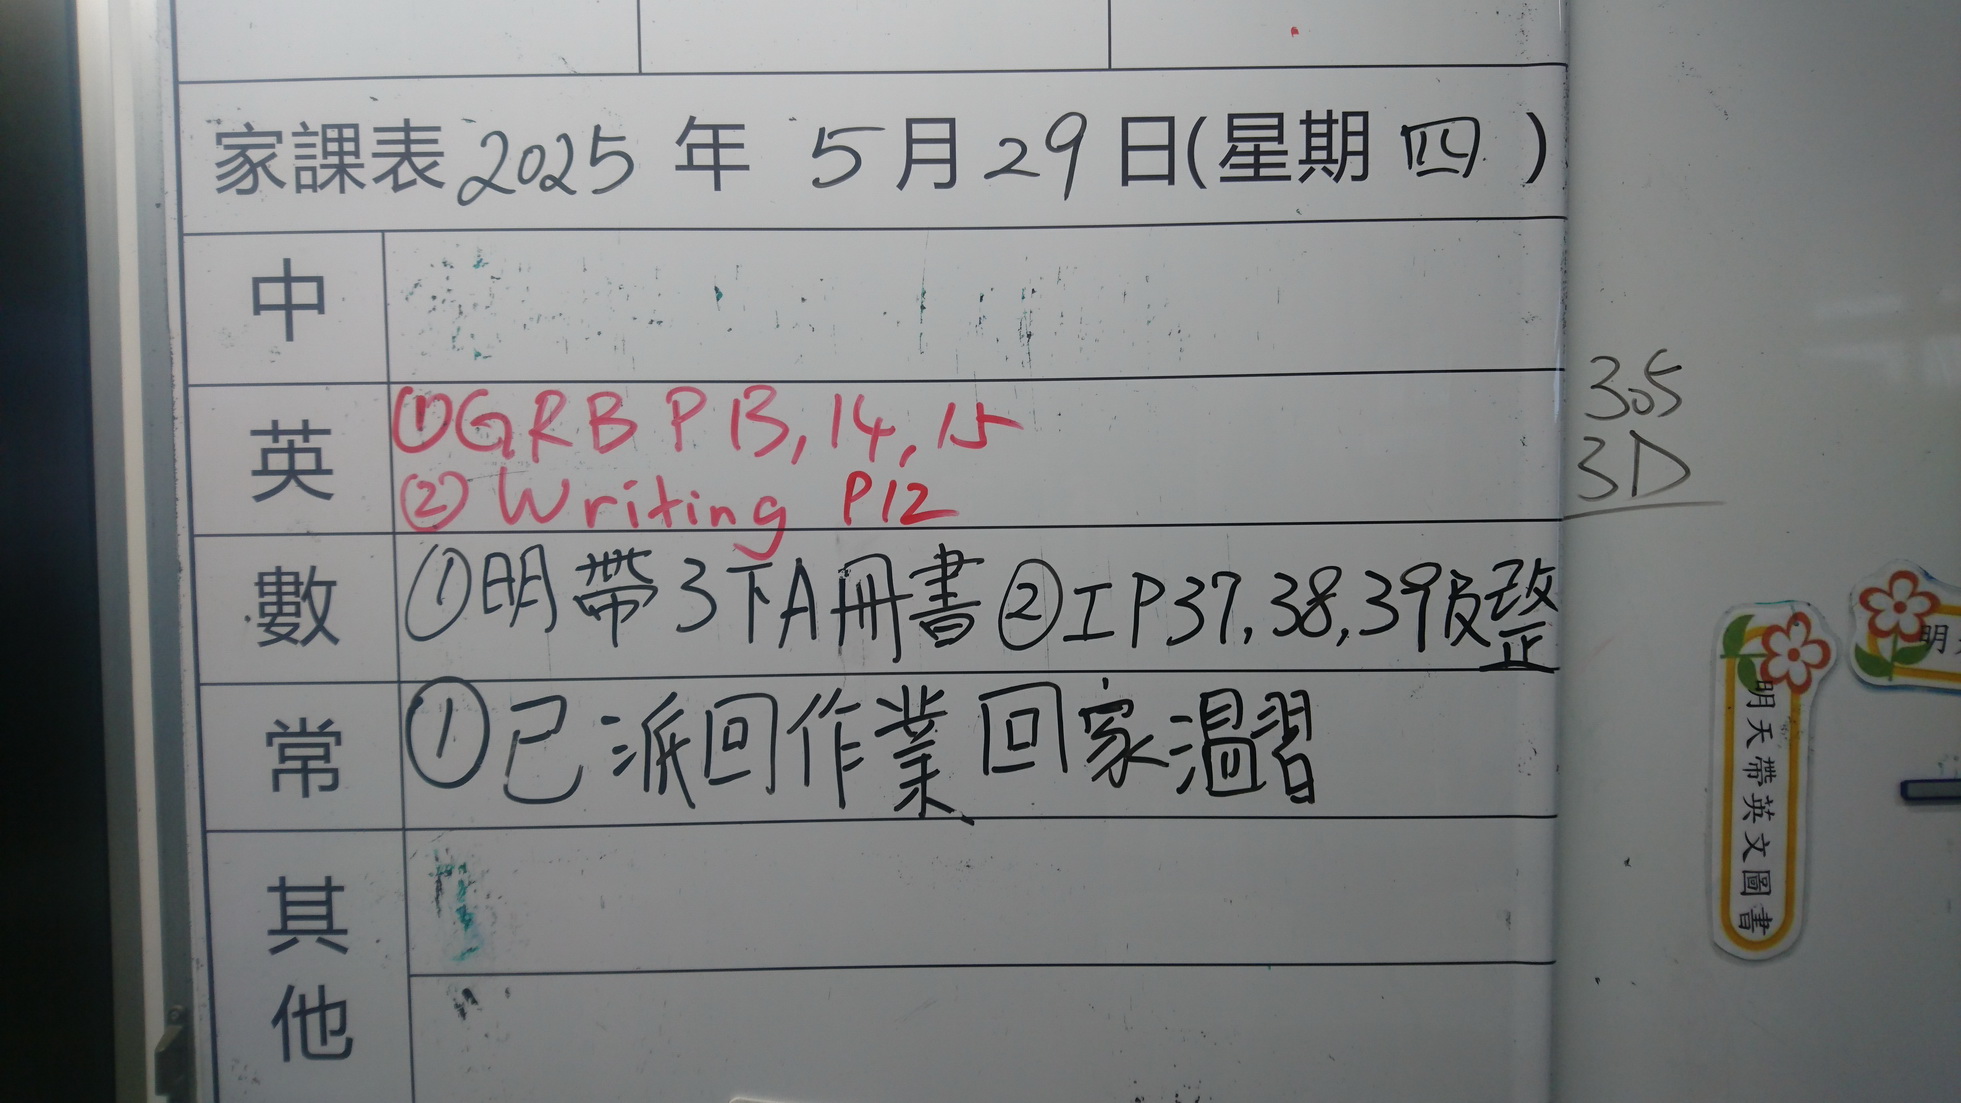 家課表 2025 年 5 月 29 日(星期 四 )
中
英
①GRB P13,14,15
② Writing P12
數
①明帶3下A冊書②工P37,38,39及整
常
①已派回作業回家溫習
其
他
305
3D
明天帶英文圖書
明天